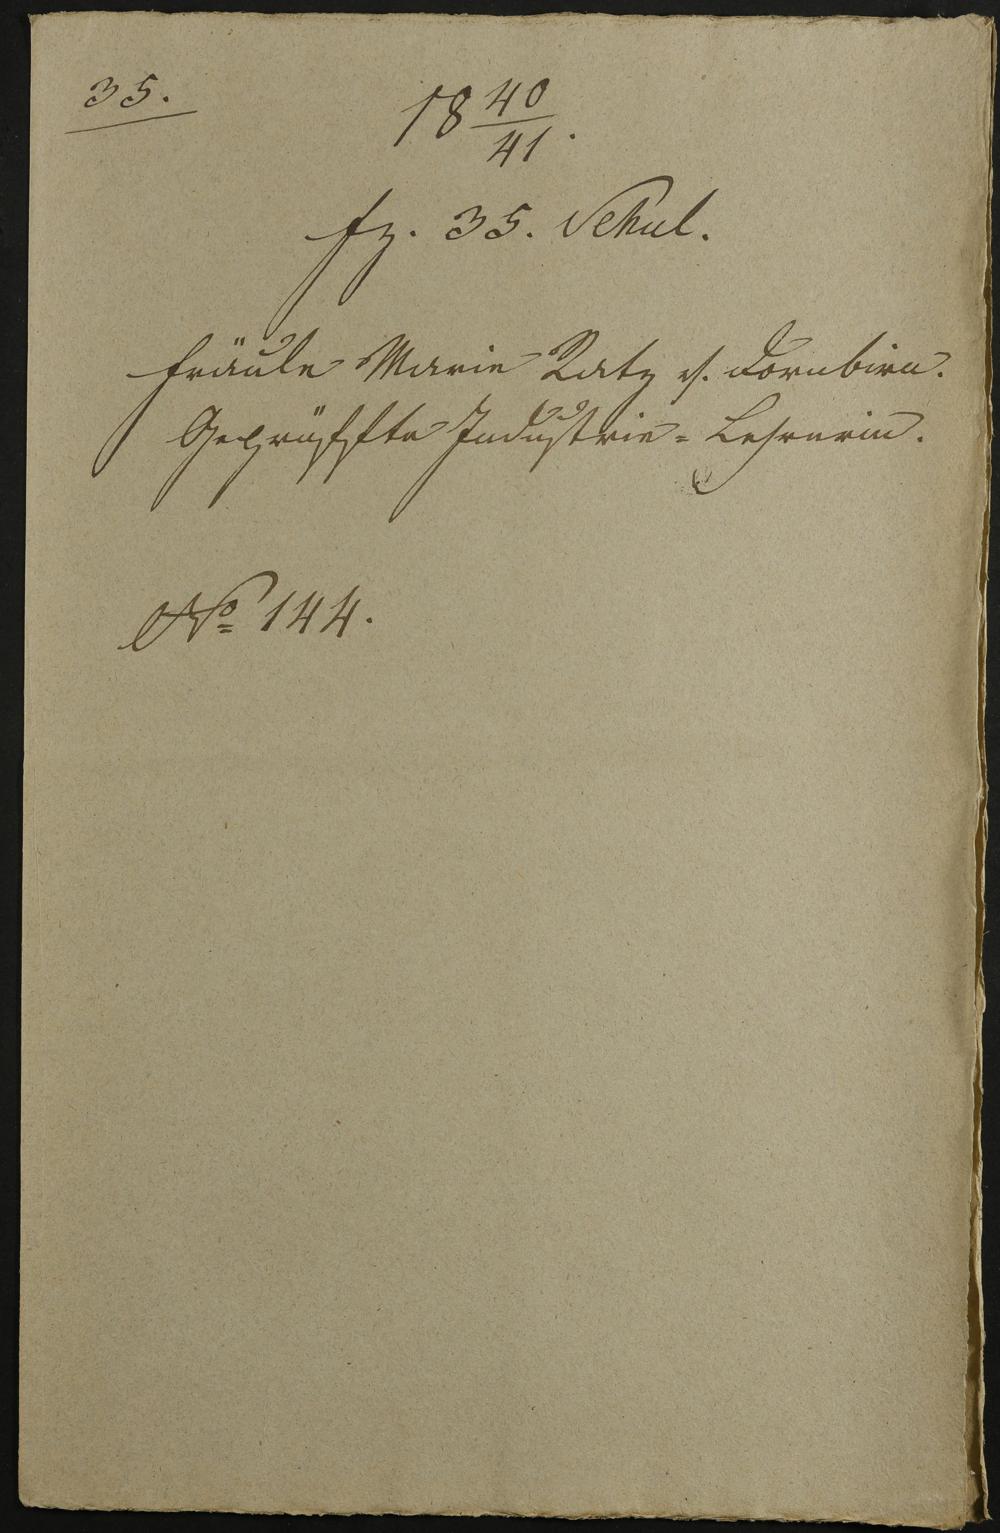 35.
18 40/41.
fz. 35. Schul.
Fräule Marie Ratz v. Dornbirn.
Geprüffte Industrie=Lehrerin.
No 144.